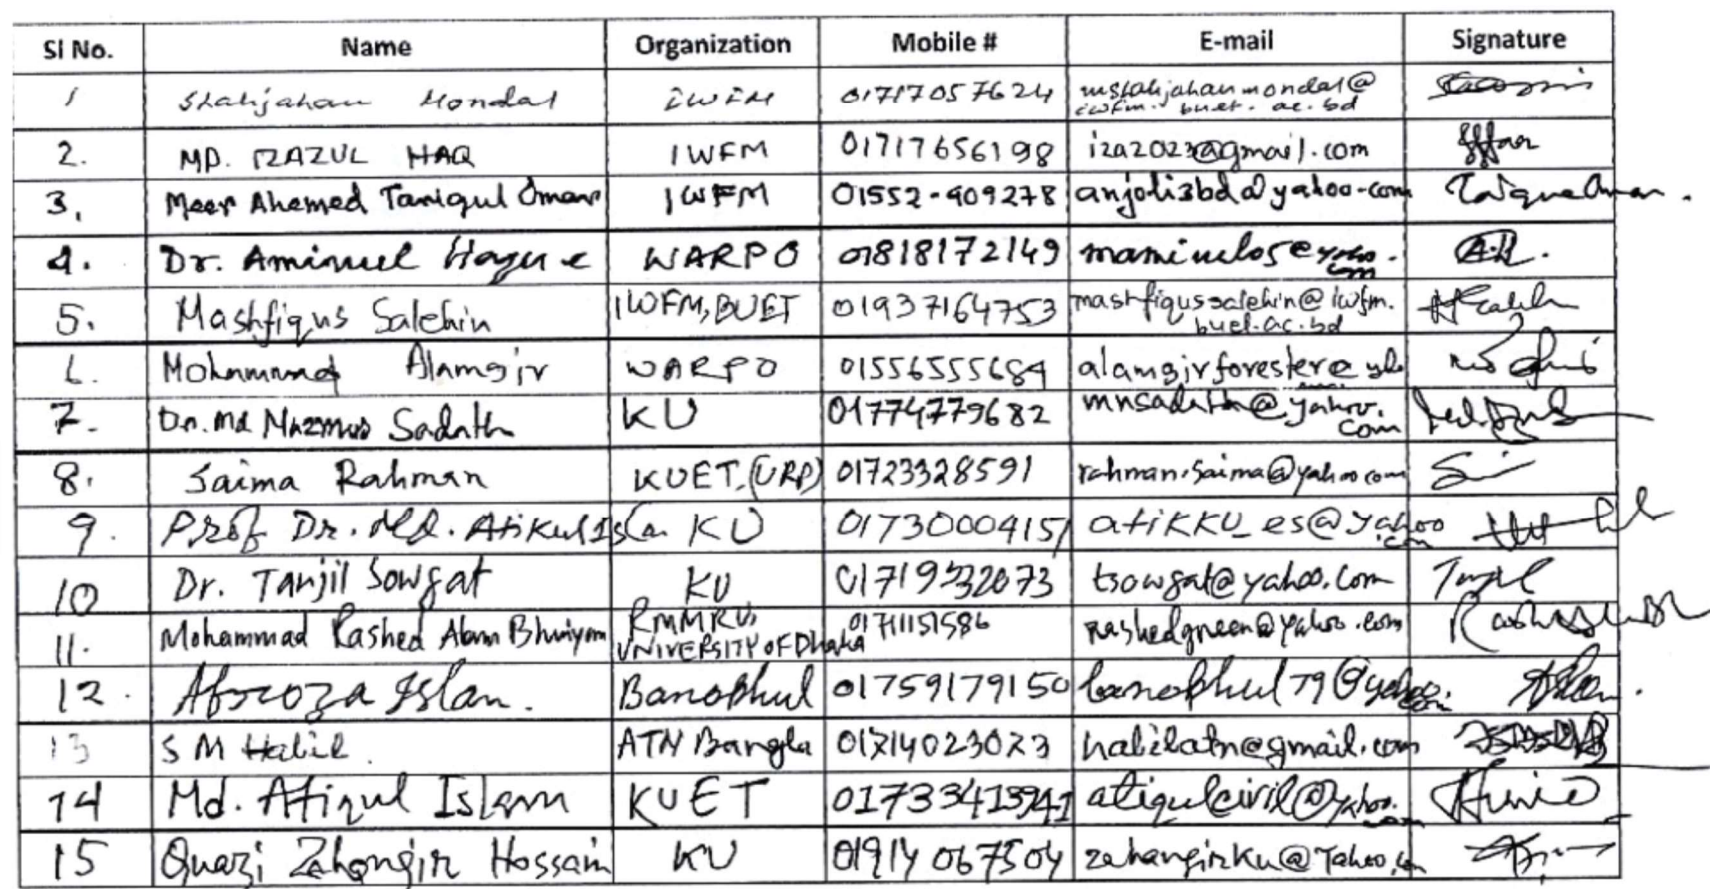 Sl No. Name Organization Mobile # E-mail Signature
1 Shahjahan Mondal IWFM 01717057624 mshahjahanmondal@
iwfm.buet.ac.bd
2. MD. IZAZUL HAQ IWFM 01717656198 iza2023@gmail.com
3. Meer Ahemed Tariqul Omar IWFM 01552-909278 anjoli3bd@yahoo.com
4. Dr. Aminul Haque WARPO 01818172149 maminul05@yahoo.
com
5. Mashfiqus Salehin IWFM, BUET 01937164753 mashfiqussalehin@iwfm.
buet.ac.bd
6. Mohammad Alamgir WARPO 01556555684
7. Dr. Md Nazmus Sadath KU 01774779682 mnsadath@yahoo.
com
8. Saima Rahman KUET, (URP) 01723328591 rahman.saima@yahoo.com
9. Prof Dr. Md. Atikul Islam KU 01730004151 atikKU_es@yahoo
.com
10 Dr. Tanjil Sowgat KU tsowgat@yahoo.com
11. Mohammad Rashed Alam Bhuiyan RMMRU, 01711151586 rashedgreen@yahoo.com
UNIVERSITY OF Dhaka
12. Afroza Islam. Banophul 01759179150 banophul79@yahoo.
com
13 S M Habib ATN Bangla 01714023073 habibatn@gmail.com
14 Md. Atiqul Islam KUET atiqulcivil@yahoo.
com
15 Quazi Zahangir Hossain KU 01914067504 zahangirku@Yahoo.com